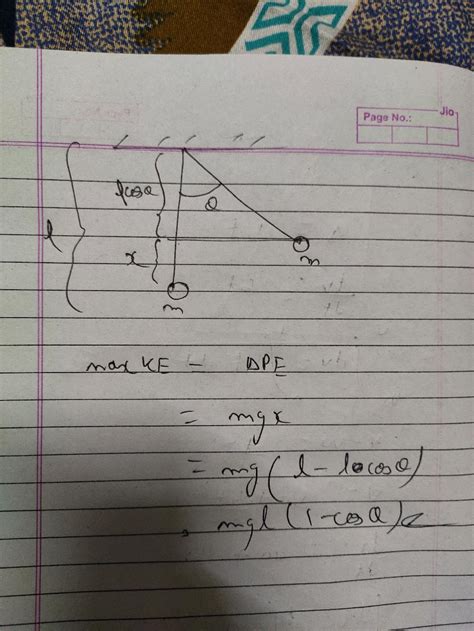 Jio
Page No.:
lcosθ
θ
l
x
m
m
max KE = ΔPE
= mgx
= mg(l - lcosθ)
, mgl(1-cosθ)